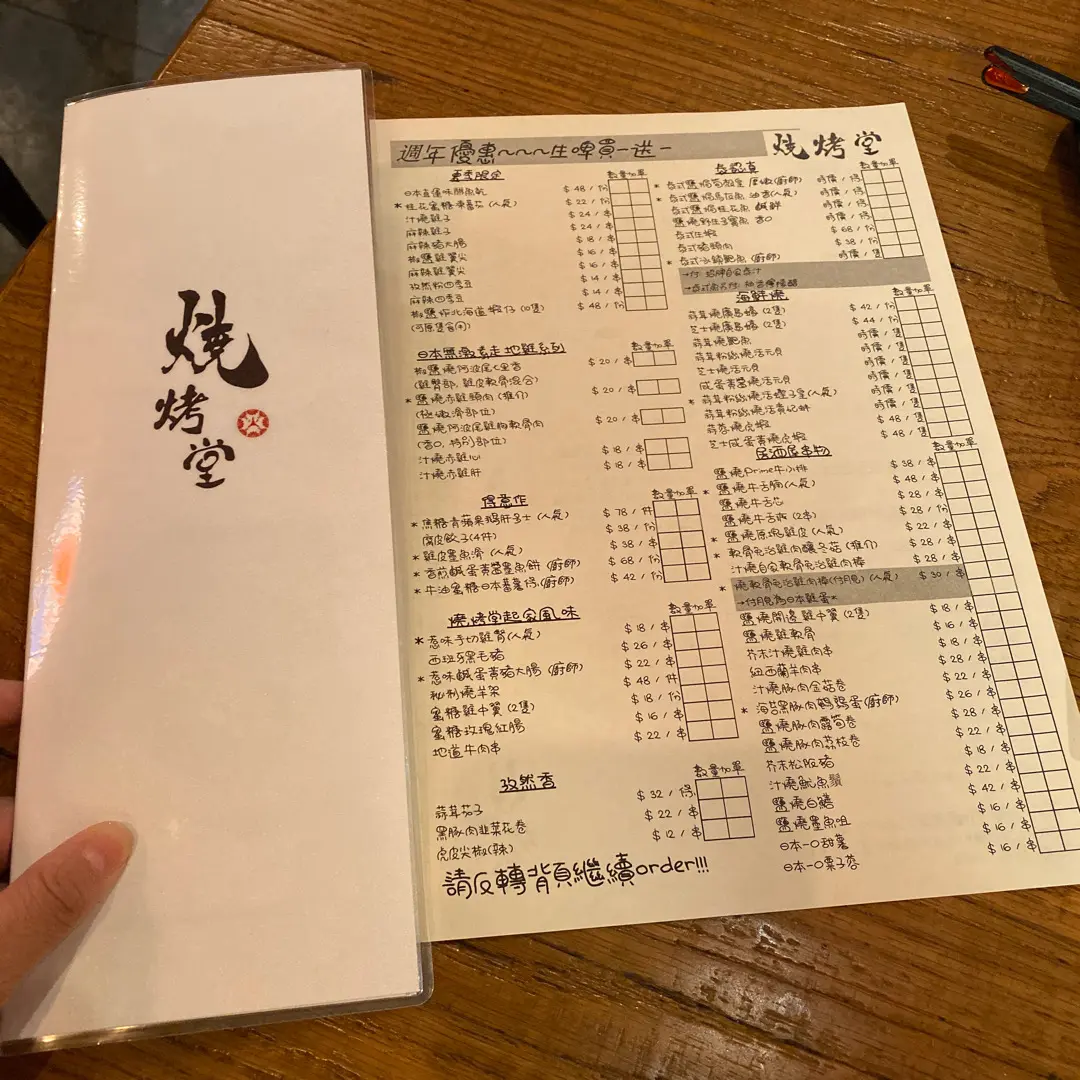 燒
烤
堂
週年優惠~~~生啤買一送一
燒烤堂
夏季限定
數量加單
* 桂花蜜糖車番茄 (人氣) $22 / 份
汁燒雞子 $24 / 串
麻辣雞子 $24 / 串
麻辣豬大腸 $18 / 串
椒鹽雞翼尖 $16 / 串
麻辣雞翼尖 $16 / 串
孜然粉四季豆 $14 / 串
麻辣四季豆 $14 / 串
椒鹽炸北海道蝦仔 (10隻) $48 / 份
日本無激素走地雞系列
數量加單
椒鹽燒阿波尾 $20 / 串
(雞臀部, 雞皮軟骨混合)
* 鹽燒赤雞頸肉 (推介) $20 / 串
(極嫩滑部位)
鹽燒阿波尾雞胸軟骨肉 $20 / 串
特別部位)
汁燒赤雞心 $18 / 串
汁燒赤雞肝 $18 / 串
得意作
數量加單
* 焦糖青蘋果鵝肝多士 (人氣) $78 / 件
腐皮餃子(4件) $38 / 份
* 雞皮墨魚滑 (人氣) $38 / 串
* 香煎鹹蛋黃蟹墨魚餅 (廚師) $68 / 份
* 牛油蜜糖日本蕃薯 (廚師) $42 / 份
燒烤堂起家風味
數量加單
* 惹味手切雞腎(人氣) $18 / 串
西班牙黑毛豬 $26 / 串
* 惹味鹹蛋黃豬大腸 (廚師) $22 / 串
秘制燒羊架 $48 / 件
蜜糖雞中翼 (2隻) $18 / 份
蜜糖玫瑰紅腸 $16 / 串
地道牛肉串 $22 / 串
孜然香
數量加單
蒜茸茄子 $32 / 條
黑豚肉韮菜花卷 $22 / 串
虎皮尖椒(辣) $12 / 串
請反轉背頁繼續order!!!
數量加單
時價 / 條
時價 / 條
時價 / 份
時價 / 份
泰式生蝦 $68 / 份
泰式豬頸肉 $38 / 份
時價 / 隻
海鮮燒
數量加單
蒜茸燒廣島蠔 (2隻) $42 / 份
芝士燒廣島蠔 (2隻) $44 / 份
蒜茸燒鮑魚 時價 / 隻
蒜茸粉絲燒活元貝 時價 / 隻
芝士燒活元貝 時價 / 隻
咸蛋黃醬燒活元貝 時價 / 隻
* 蒜茸粉絲燒活蟶子皇(人氣) 時價 / 隻
蒜茸粉絲燒活貴妃蚌 時價 / 隻
蒜蓉燒虎蝦 $48 / 隻
芝士咸蛋黃燒虎蝦 $48 / 隻
居酒屋串物
數量加單
鹽燒Prime牛小排 $38 / 串
* 鹽燒牛舌 (人氣) $48 / 串
鹽燒牛舌芯 $28 / 串
鹽燒牛舌 (2串) $28 / 份
* 鹽燒原塊雞皮 (人氣) $22 / 串
* 軟骨免治雞肉釀冬菇 (推介) $28 / 串
汁燒自家軟骨免治雞肉棒 $28 / 串
* 燒軟骨免治雞肉棒(付月見) (人氣) $30 / 串
→付月見為日本雞蛋*
鹽燒開邊雞中翼 (2隻) $18 / 串
鹽燒雞軟骨 $16 / 串
芥末汁燒雞肉串 $18 / 串
紐西蘭羊肉串 $28 / 串
汁燒豚肉金菇卷 $22 / 串
* 海苔黑豚肉鵪鶉蛋(廚師) $26 / 串
鹽燒豚肉露筍卷 $28 / 串
鹽燒豚肉荔枝卷 $22 / 串
芥末松阪豬 $18 / 串
汁燒魷魚鬚 $22 / 串
鹽燒白鱔 $42 / 串
鹽燒墨魚咀 $16 / 串
日本一口甜薯 $16 / 串
日本一口栗子蓉 $16 / 串